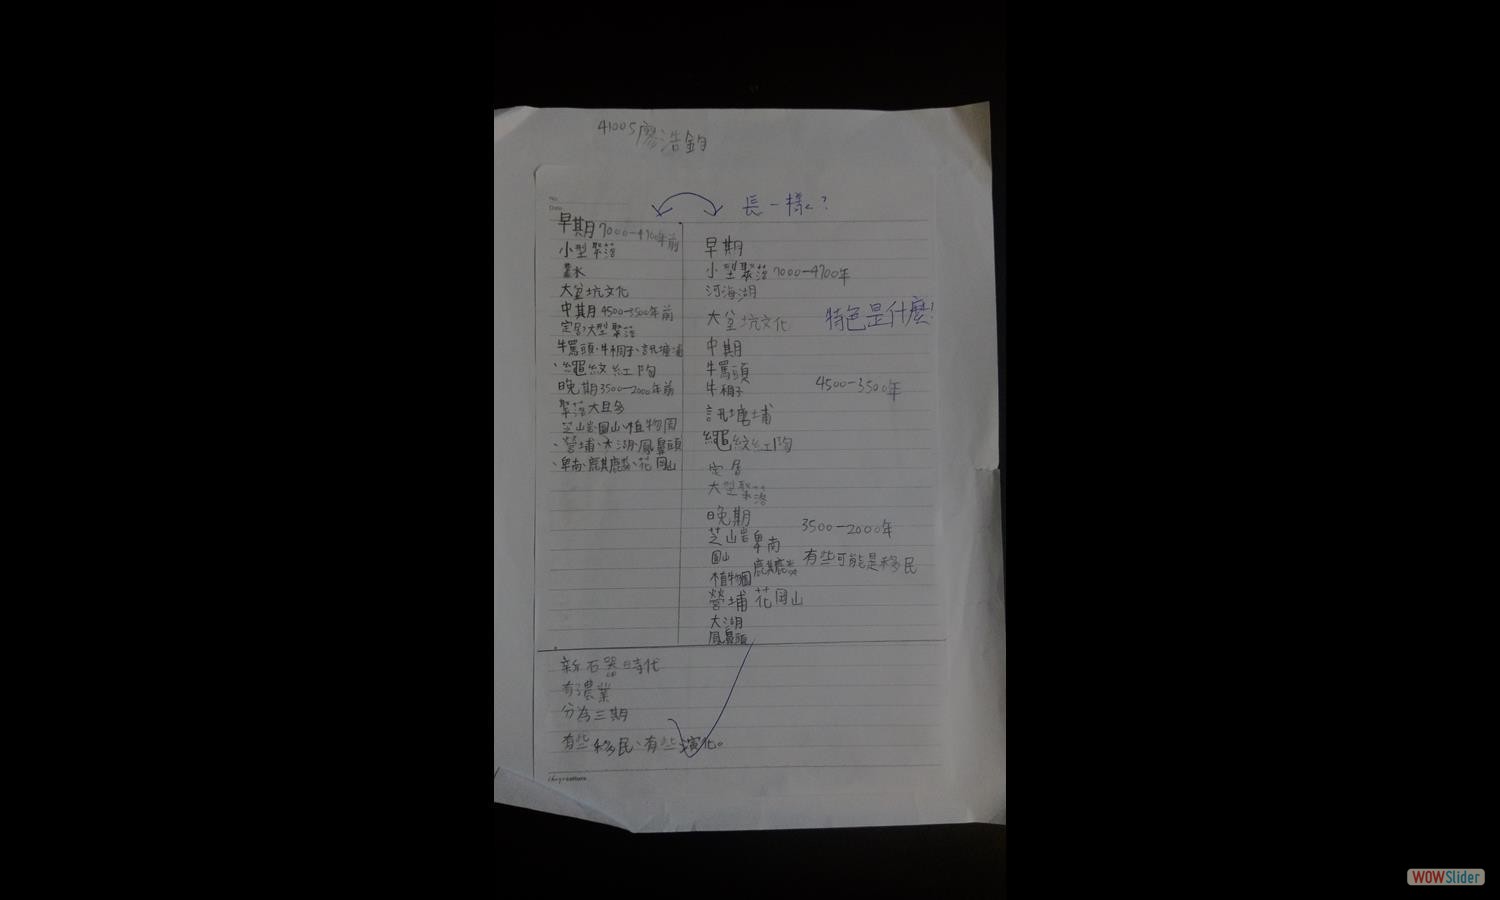 41005廖浩鈞
長一樣?
No.
Date
早期7000-4700年前
小型聚落
靠水
大坌坑文化
中期4500-3500年前
定居大型聚落
牛罵頭、牛稠子、訊塘埔
、繩紋紅陶
晚期3500-2000年前
聚落大且多
芝山岩、圓山、植物園
、營埔、大湖、鳳鼻頭
、卑南、麒麟、花岡山
早期
小型聚落7000-4700年
河海湖
大坌坑文化
特色是什麼!
中期
牛罵頭
牛稠子
4500-3500年
訊塘埔
繩紋紅陶
定居
大型聚落
晚期
3500-2000年
芝山岩 卑南
圓山
有些可能是移民
植物園 麒麟
營埔 花岡山
大湖
鳳鼻頭
新石器時代
有農業
分為三期
有些移民、有些演化。
WOWSlider